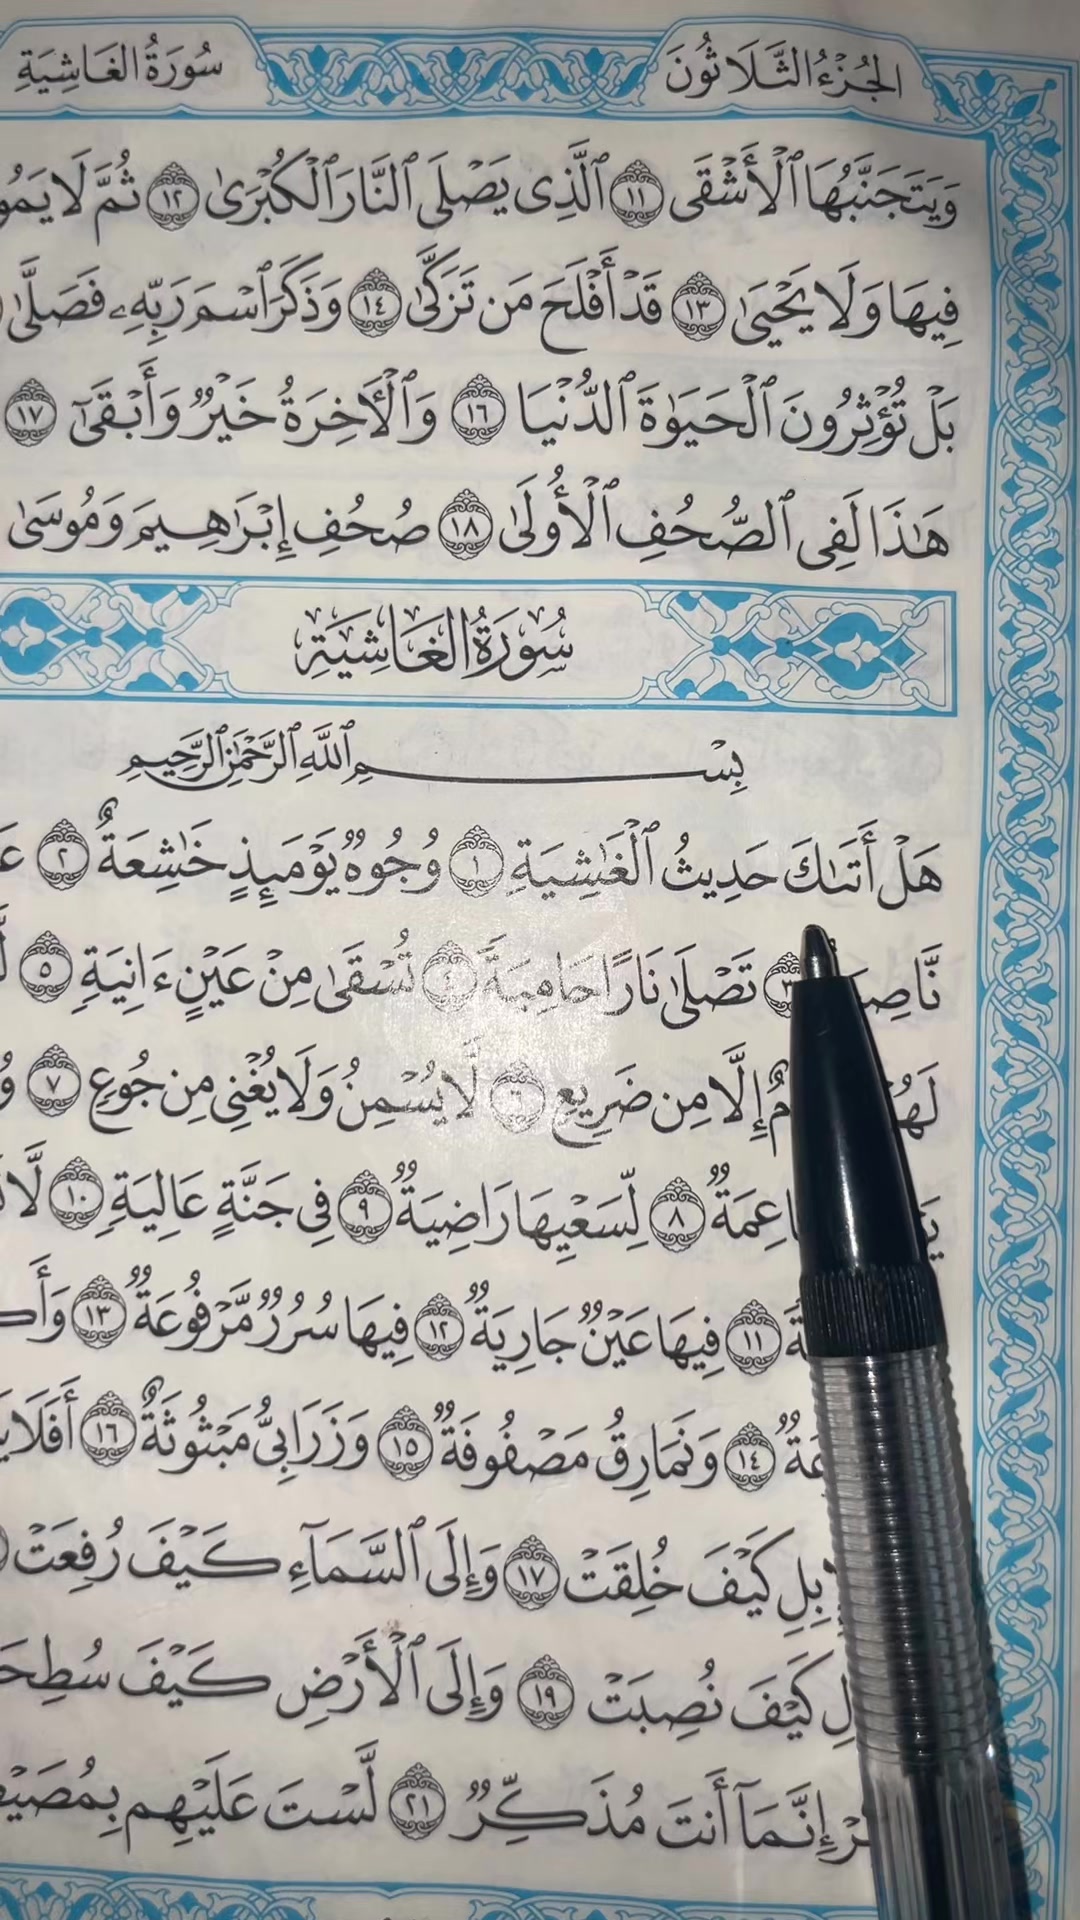 الجُزْءُ الثَّلَاثُونَ سُورَةُ الغَاشِيَةِ
وَيَتَجَنَّبُهَا ٱلْأَشْقَى ١١ ٱلَّذِى يَصْلَى ٱلنَّارَ ٱلْكُبْرَىٰ ١٢ ثُمَّ لَا يَمُو
فِيهَا وَلَا يَحْيَىٰ ١٣ قَدْ أَفْلَحَ مَن تَزَكَّىٰ ١٤ وَذَكَرَ ٱسْمَ رَبِّهِۦ فَصَلَّىٰ
بَلْ تُؤْثِرُونَ ٱلْحَيَوٰةَ ٱلدُّنْيَا ١٦ وَٱلْأَخِرَةُ خَيْرٌ وَأَبْقَىٰٓ ١٧
هَٰذَا لَفِى ٱلصُّحُفِ ٱلْأُولَىٰ ١٨ صُحُفِ إِبْرَٰهِيمَ وَمُوسَىٰ
سُورَةُ الغَاشِيَةِ
بِسْمِ ٱللَّهِ ٱلرَّحْمَٰنِ ٱلرَّحِيمِ
هَلْ أَتَىٰكَ حَدِيثُ ٱلْغَٰشِيَةِ ١ وُجُوهٌ يَوْمَئِذٍ خَٰشِعَةٌ ٢ عَ
نَّاصِ ٣ تَصْلَىٰ نَارًا حَامِيَةً ٤ تُسْقَىٰ مِنْ عَيْنٍ ءَانِيَةٍ ٥ لَّ
لَهُ مٌ إِلَّا مِن ضَرِيعٍ ٦ لَّا يُسْمِنُ وَلَا يُغْنِى مِن جُوعٍ ٧ وُ
يَ اعِمَةٌ ٨ لِّسَعْيِهَا رَاضِيَةٌ ٩ فِى جَنَّةٍ عَالِيَةٍ ١٠ لَّا تَ
ةً ١١ فِيهَا عَيْنٌ جَارِيَةٌ ١٢ فِيهَا سُرُرٌ مَّرْفُوعَةٌ ١٣ وَأَكـ
عَةٌ ١٤ وَنَمَارِقُ مَصْفُوفَةٌ ١٥ وَزَرَابِىُّ مَبْثُوثَةٌ ١٦ أَفَلَا يَـ
بِلِ كَيْفَ خُلِقَتْ ١٧ وَإِلَى ٱلسَّمَآءِ كَيْفَ رُفِعَتْ
لِ كَيْفَ نُصِبَتْ ١٩ وَإِلَى ٱلْأَرْضِ كَيْفَ سُطِحَ
رْ إِنَّمَآ أَنتَ مُذَكِّرٌ ٢١ لَّسْتَ عَلَيْهِم بِمُصَيْ